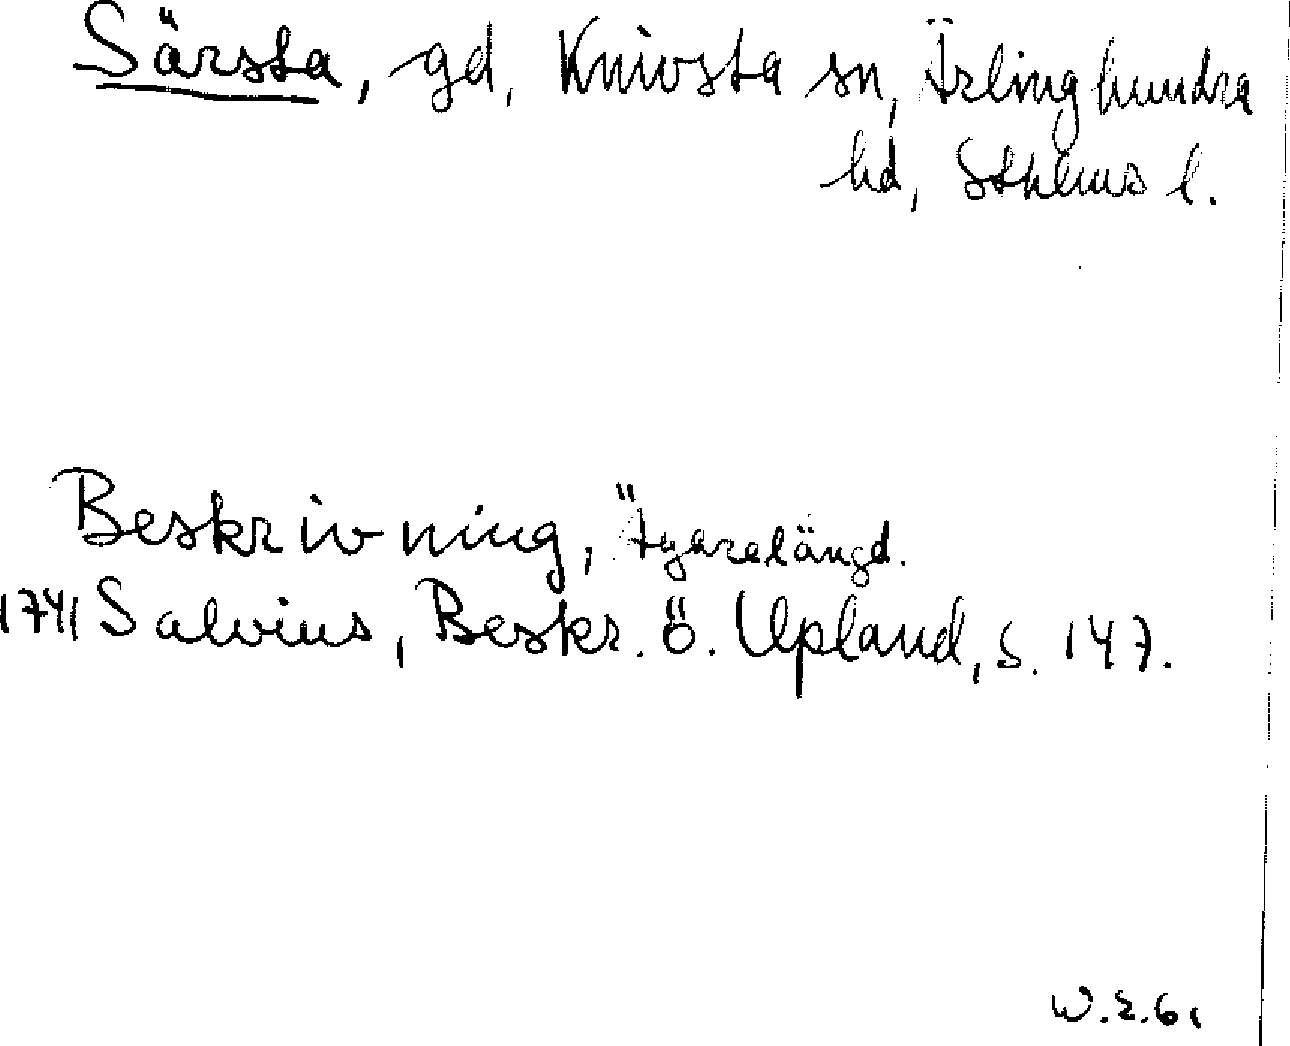 Särsta, gd, Knivsta sn, Ärlinghundra
hd, Sthlms l.
Beskrivning, Ägarelängd.
1741 Salvius, Beskr. ö. Upland, s. 147.
W.E.61